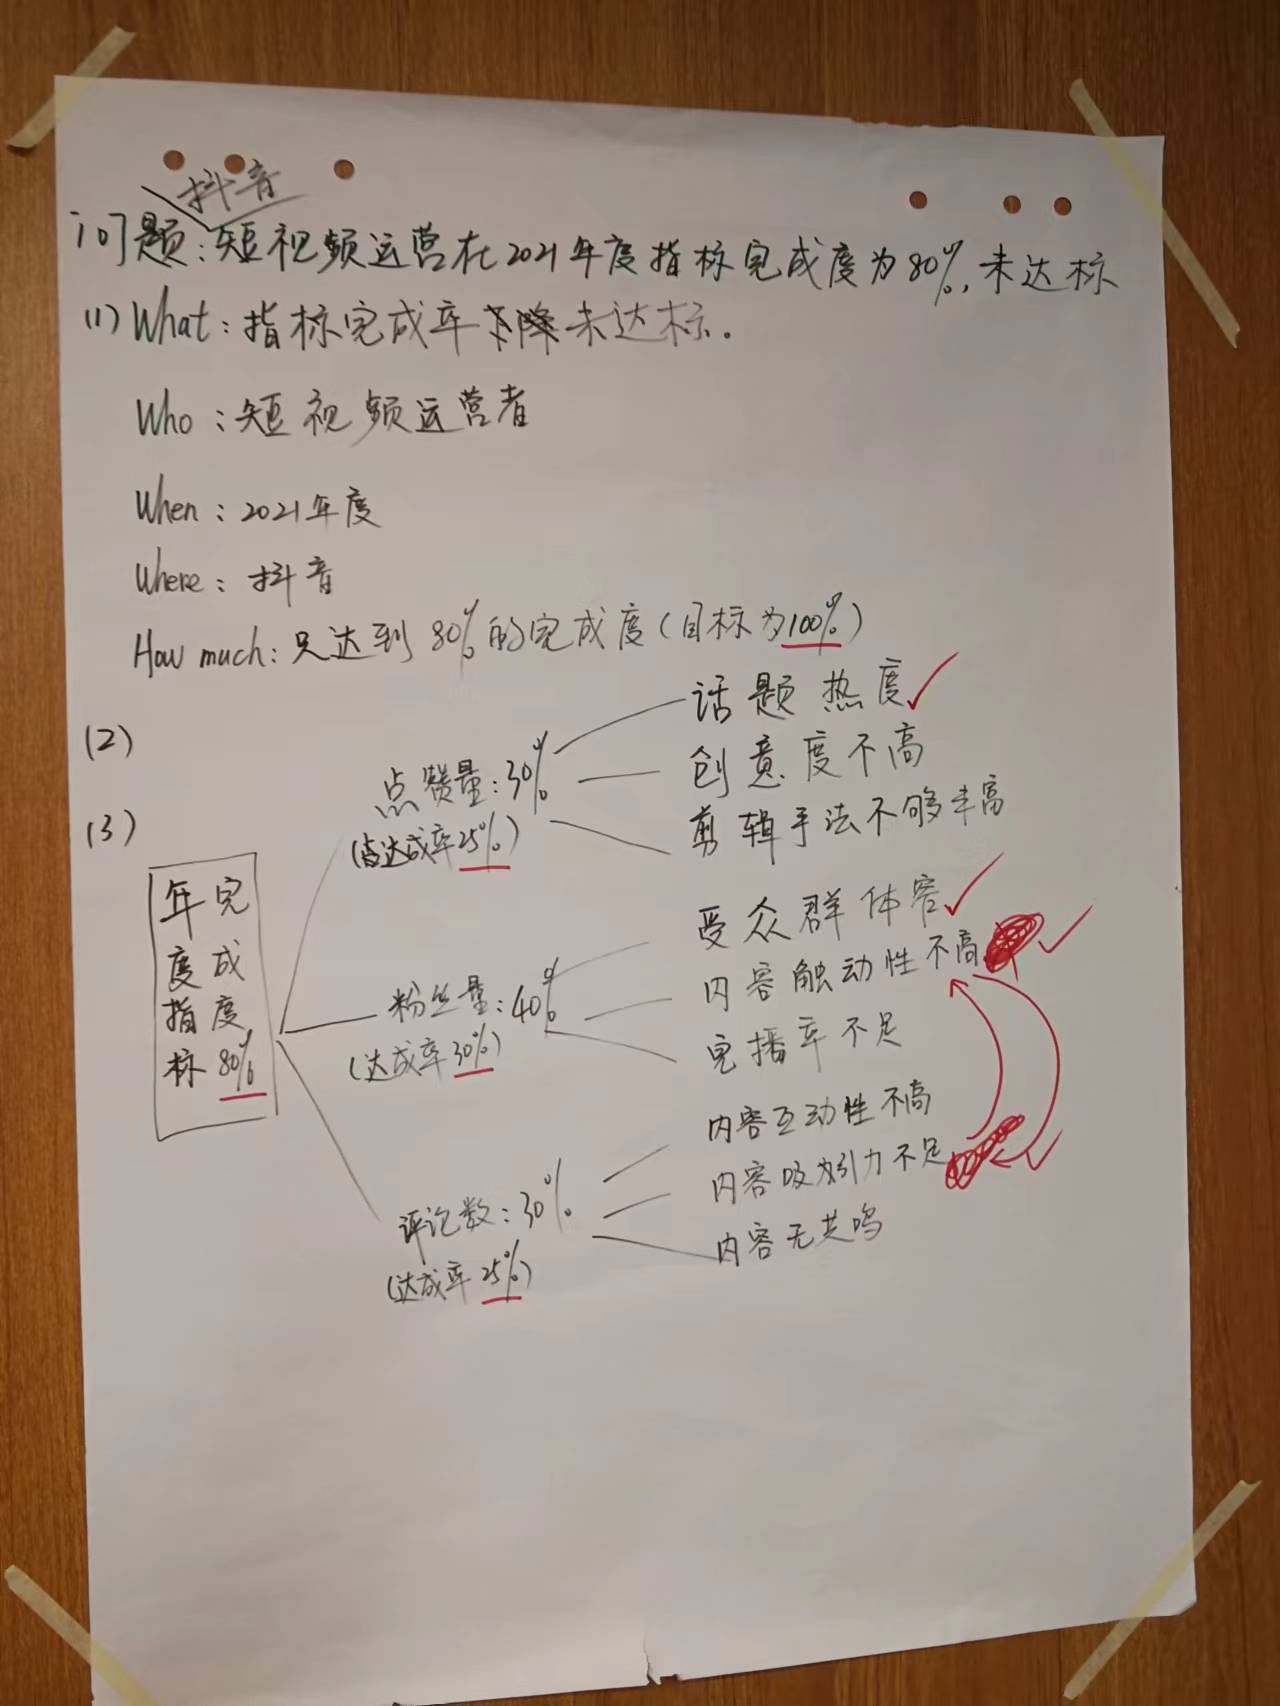 抖音
问题:短视频运营在2021年度指标完成度为80%,未达标
(1) What:指标完成率下降未达标。
Who:短视频运营者
When:2021年度
Where:抖音
How much:只达到80%的完成度(目标为100%)
(2)
(3)
年度指标完成度80%
点赞量:30%
(达成率25%)
话题热度
创意度不高
剪辑手法不够丰富
粉丝量:40%
(达成率30%)
受众群体窄
内容触动性不高
完播率不足
评论数:30%
(达成率25%)
内容互动性不高
内容吸引力不足
内容无共鸣